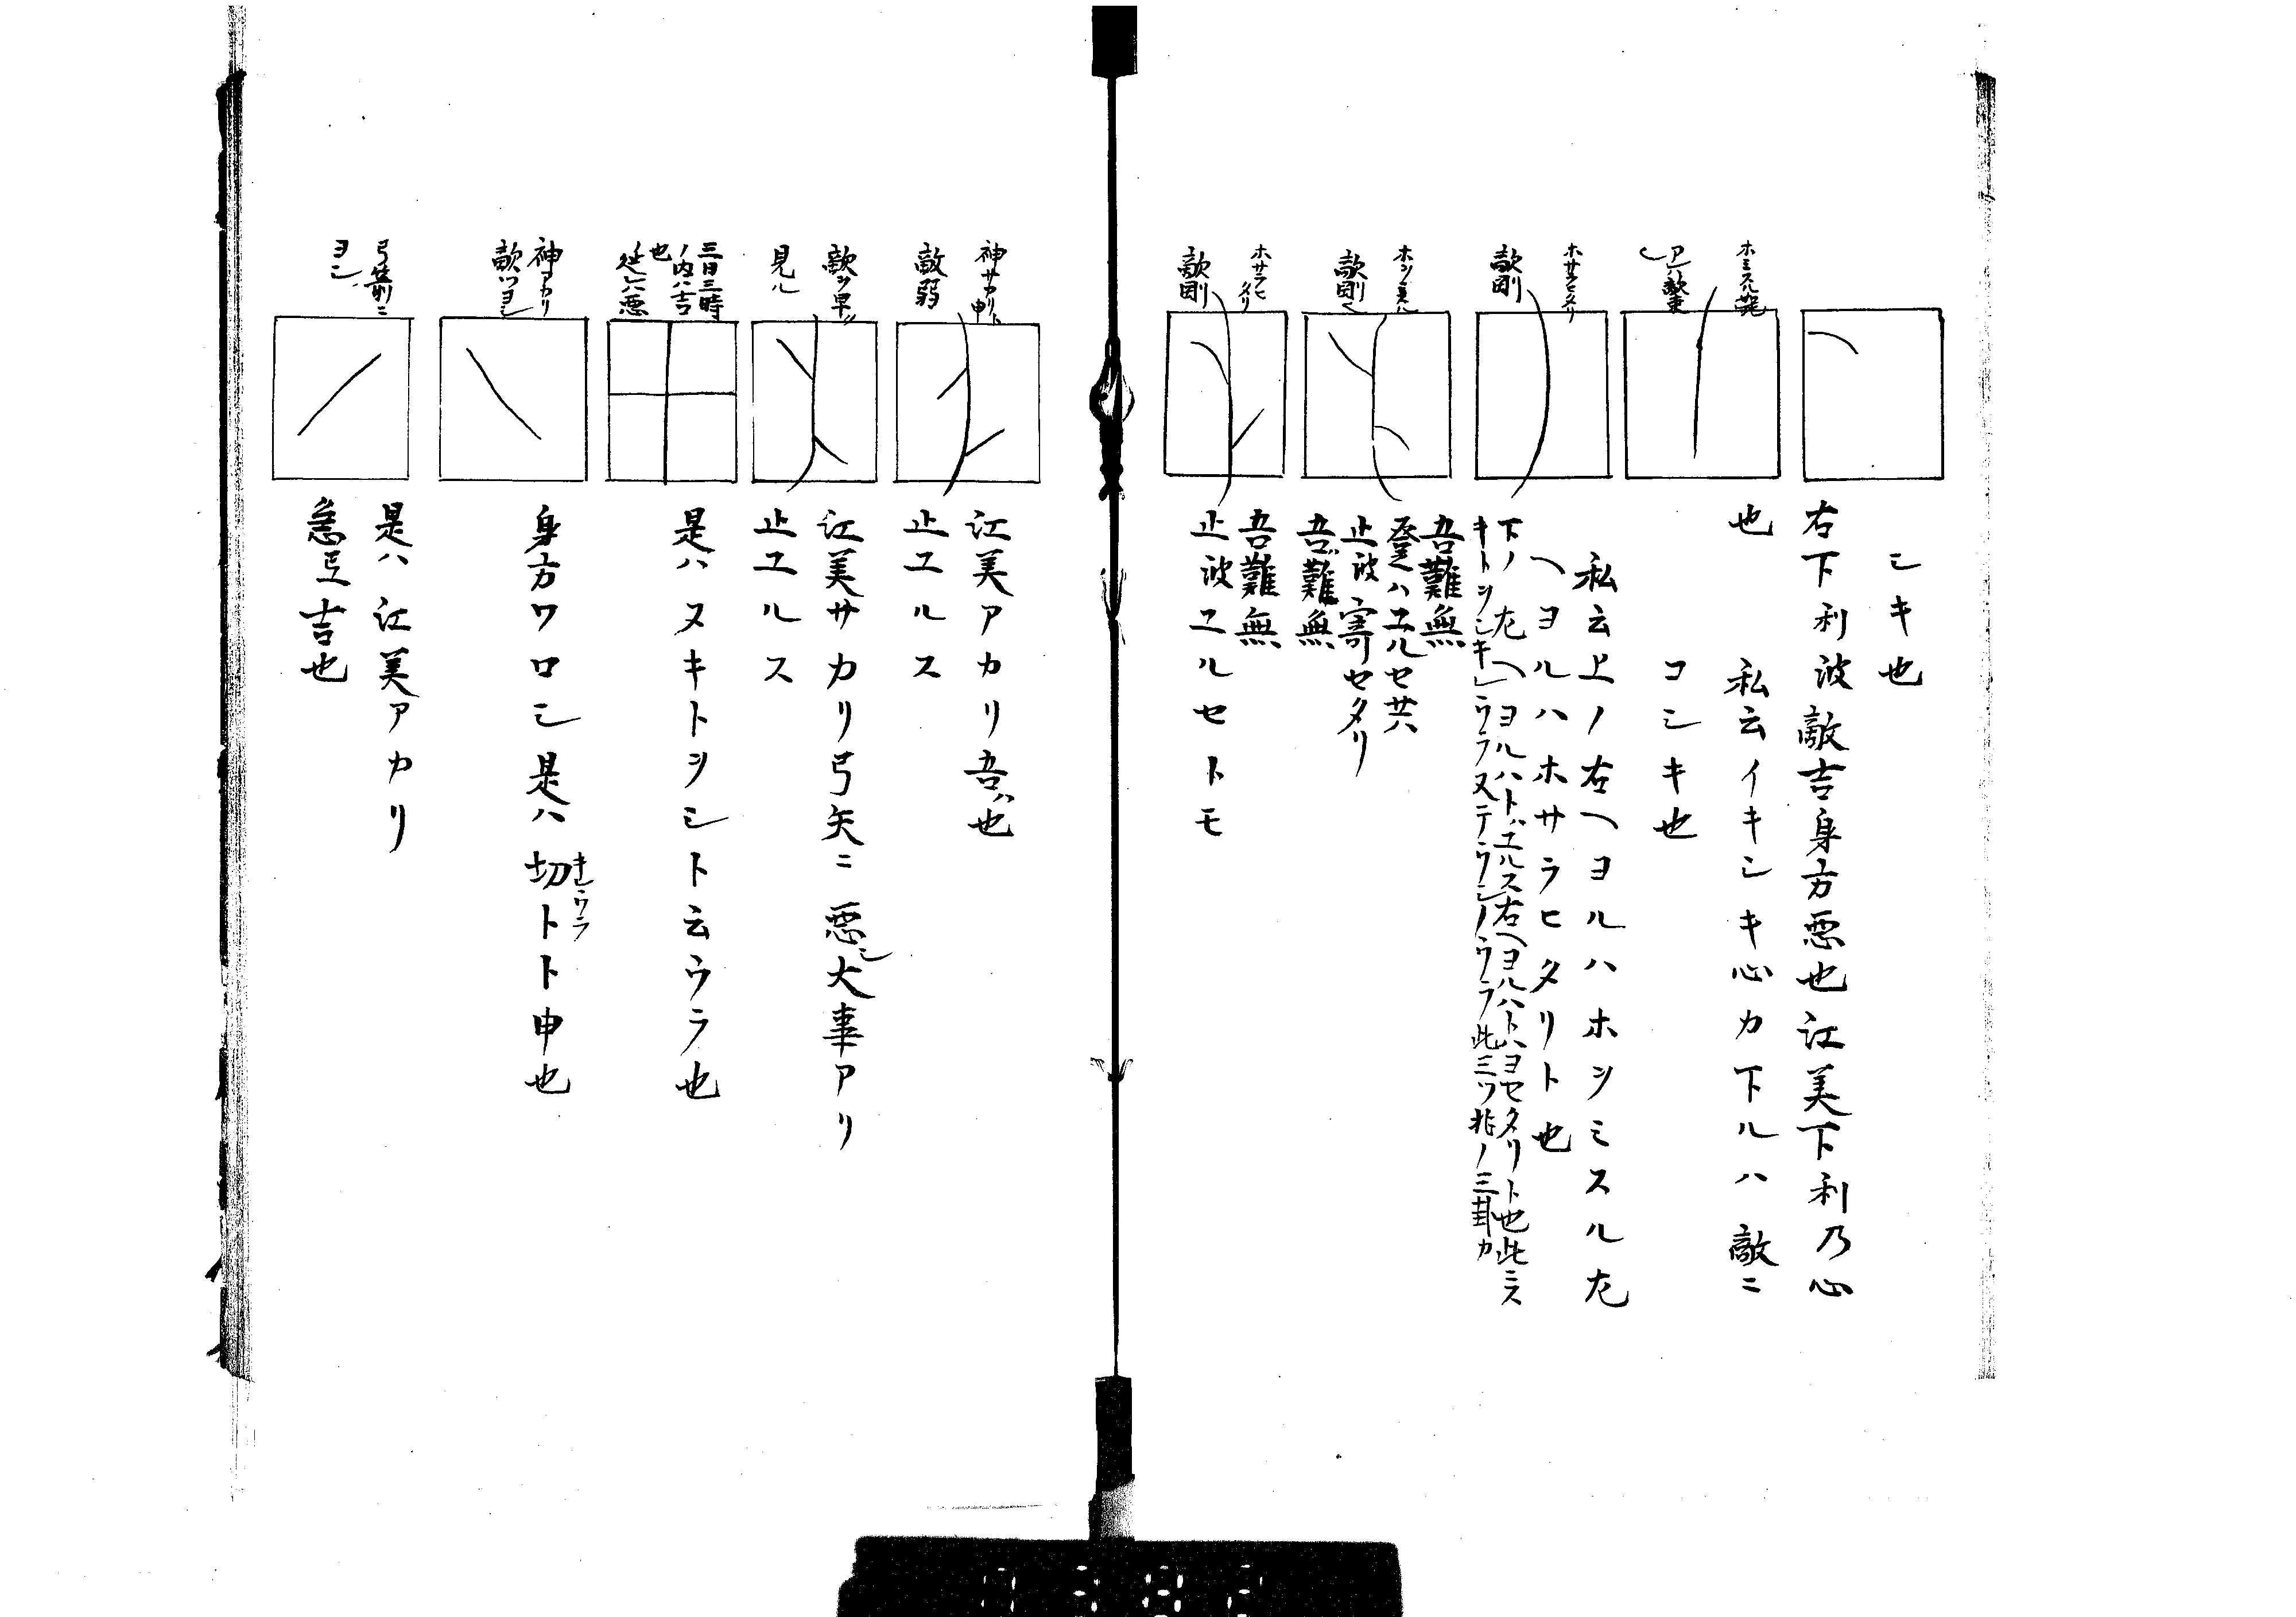 シキ也
右下利波敵吉身方悪也江美下利乃心
也　私云イキシキ心カ下ルハ敵ニ
コシキ也
私云上ノ右ヘヨルハホソミスル左
ヘヨルハホサラヒタリト也
下ノ左ヘヨルハトハエルス右ヘヨルハトハヨセタリト也此ミス
此三ツ兆ノ三卦カ
ホサラヒタリ
敵剛
吾難無
敵剛
登ハエルセ共
止波寄セタリ
吾難無
ホサラヒタリ
敵剛
吾難無
止波エルセトモ
神サカリト申
敵弱
江美アカリ吾ハ也
止エルス
見ル
江美サカリ弓矢ニ悪シ大事アリ
止エルス
三日三時
ノ内ハ吉
也
延レハ悪
是ハヌキトヲシト云ウラ也
神ヨカリ
敵ツヨシ
身方ワロシ是ハ切トト申也
キレウラ
弓箭ニ
ヨシ
是ハ江美アカリ
急弖吉也